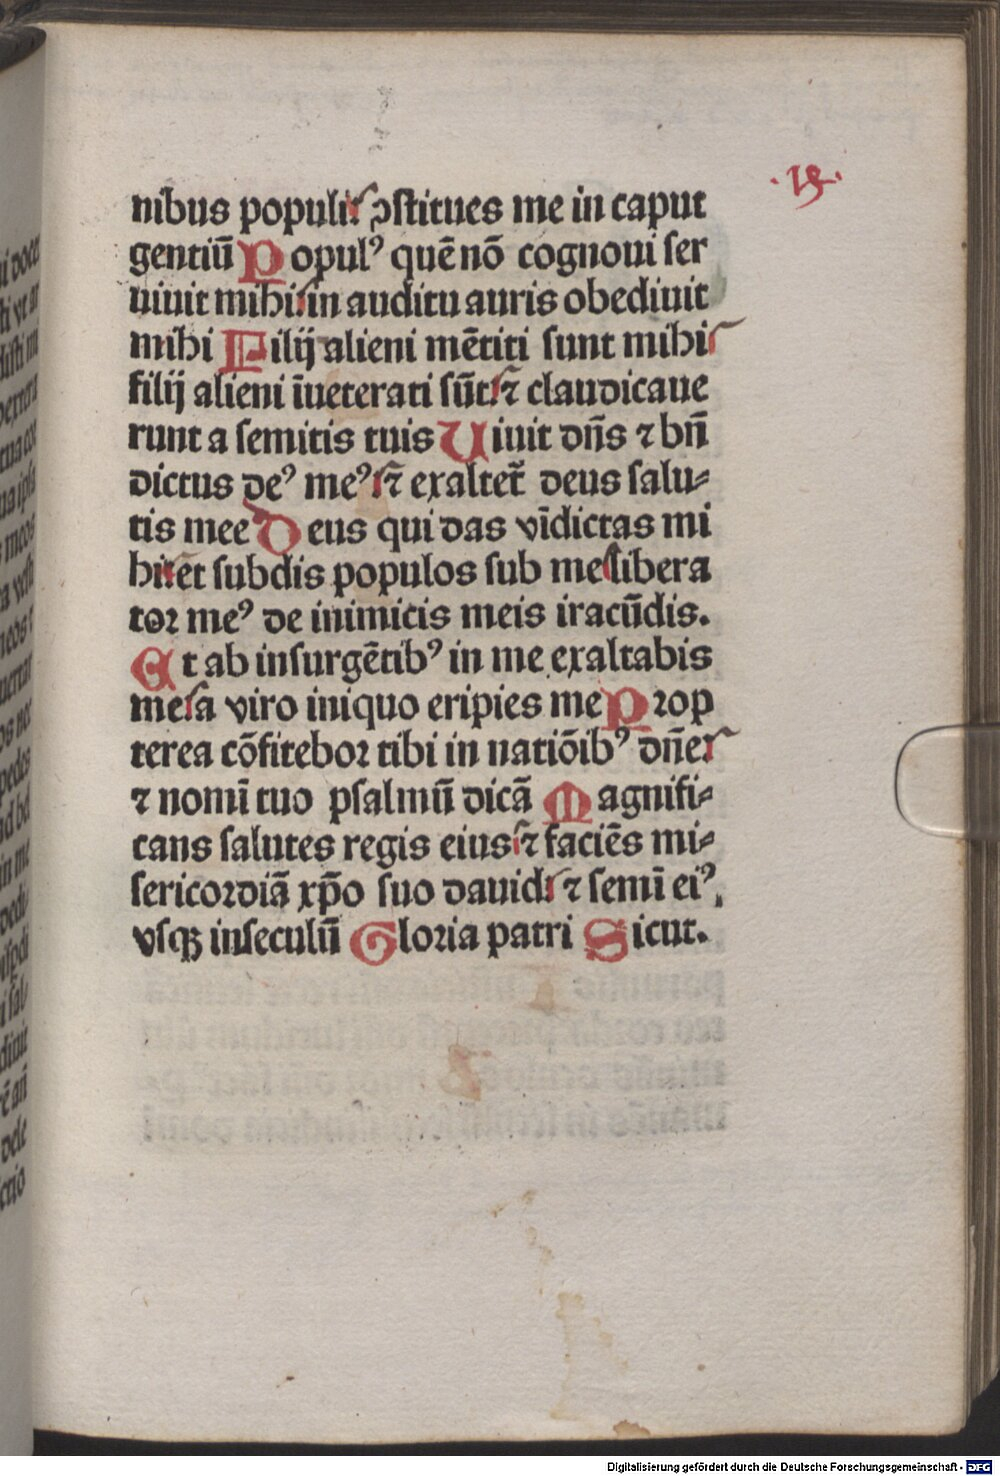 .19.
nibus populi: ꝯſtitues me in caput
gentiū Popul⁹ quē nō cognoui ſer
uiuit mihi: in auditu auris obediuit
mihi Filij alieni mētiti ſunt mihi:
filij alieni īueterati ſūt: ⁊ claudicaue
runt a ſemitis tuis Uiuit dn̄s ⁊ bn̄
dictus de⁹ me⁹: ⁊ exaltet̄ deus ſalu⸗
tis mee Deus qui das vīdictas mi
hi: et ſubdis populos ſub me: libera
toꝛ me⁹ de inimicis meis iracūdis.
Et ab inſurgētib⁹ in me exaltabis
me: a viro iniquo eripies me Pꝛop
terea cōfiteboꝛ tibi in natiōib⁹ dn̄e:
⁊ nomī tuo pſalmū dicā Magnifi⸗
cans ſalutes regis eius: ⁊ faciēs mi⸗
ſericoꝛdiā xp̄o ſuo dauid: ⁊ ſemī ei⁹,
vſqꝫ inſeculū Gloꝛia patri Sicut.
Digitalisierung gefördert durch die Deutsche Forschungsgemeinschaft - DFG